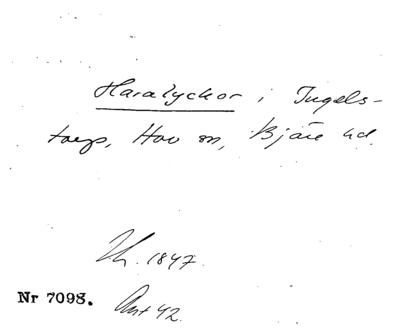 Haralyckor i Ingels-
torp, Hov sn, Bjäre hd.
1847.
Nr 7098. Ant 42.